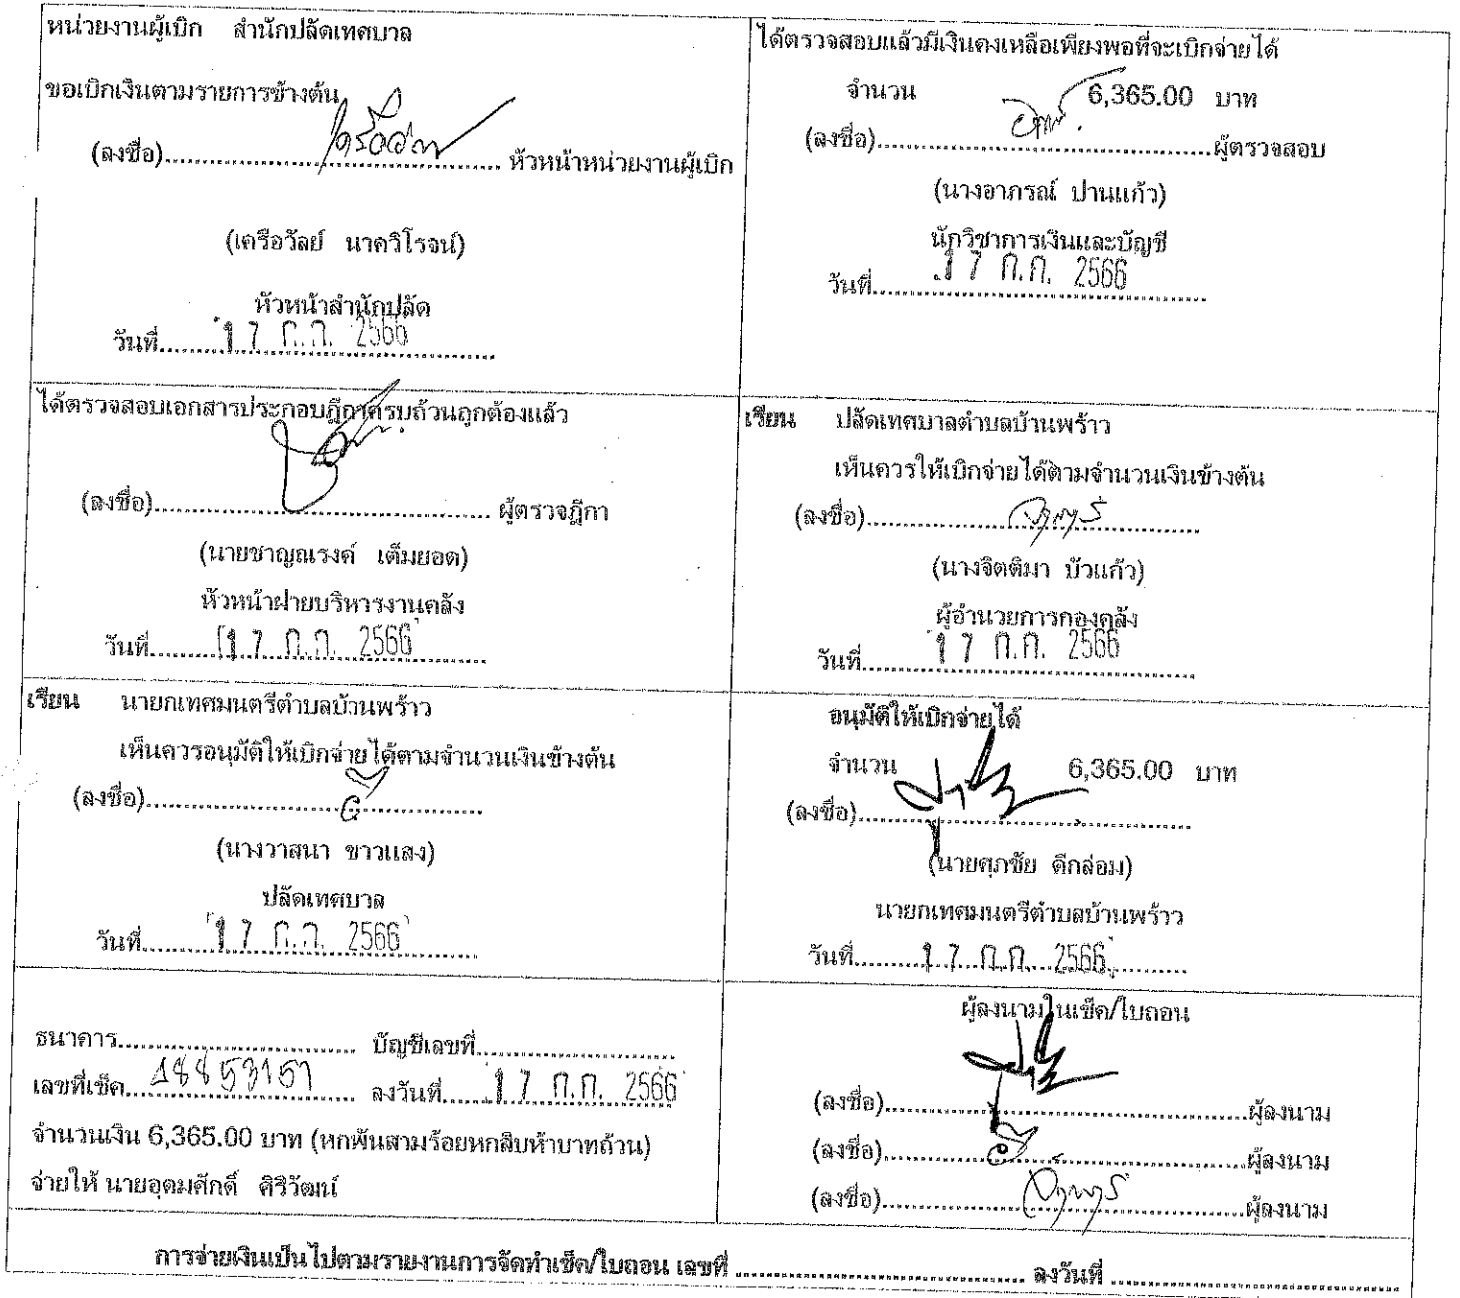 หน่วยงานผู้เบิก สำนักปลัดเทศบาล
ขอเบิกเงินตามรายการข้างต้น
(ลงชื่อ)........................ หัวหน้าหน่วยงานผู้เบิก
(เครือวัลย์ นาควิโรจน์)
หัวหน้าสำนักปลัด
วันที่ 17 ก.ค. 2566
ได้ตรวจสอบแล้วมีเงินคงเหลือเพียงพอที่จะเบิกจ่ายได้
จำนวน 6,365.00 บาท
(ลงชื่อ)........................ผู้ตรวจสอบ
(นางอาภรณ์ ปานแก้ว)
นักวิชาการเงินและบัญชี
วันที่ 17 ก.ค. 2566
ได้ตรวจสอบเอกสารประกอบฎีกาครบถ้วนถูกต้องแล้ว
(ลงชื่อ)........................ ผู้ตรวจฎีกา
(นายชาญณรงค์ เต็มยอด)
หัวหน้าฝ่ายบริหารงานคลัง
วันที่ 17 ก.ค. 2566
เรียน ปลัดเทศบาลตำบลบ้านพร้าว
เห็นควรให้เบิกจ่ายได้ตามจำนวนเงินข้างต้น
(ลงชื่อ)........................
(นางจิตติมา บัวแก้ว)
ผู้อำนวยการกองคลัง
วันที่ 17 ก.ค. 2566
เรียน นายกเทศมนตรีตำบลบ้านพร้าว
เห็นควรอนุมัติให้เบิกจ่ายได้ตามจำนวนเงินข้างต้น
(ลงชื่อ)........................
(นางวาสนา ขาวแสง)
ปลัดเทศบาล
วันที่ 17 ก.ค. 2566
อนุมัติให้เบิกจ่ายได้
จำนวน 6,365.00 บาท
(ลงชื่อ)........................
(นายศุภชัย ดีกล่อม)
นายกเทศมนตรีตำบลบ้านพร้าว
วันที่ 17 ก.ค. 2566
ธนาคาร........................ บัญชีเลขที่........................
เลขที่เช็ค........................ ลงวันที่ 17 ก.ค. 2566
จำนวนเงิน 6,365.00 บาท (หกพันสามร้อยหกสิบห้าบาทถ้วน)
จ่ายให้ นายอุดมศักดิ์ ศิริวัฒน์
ผู้ลงนามในเช็ค/ใบถอน
(ลงชื่อ)........................ผู้ลงนาม
(ลงชื่อ)........................ผู้ลงนาม
(ลงชื่อ)........................ผู้ลงนาม
การจ่ายเงินเป็นไปตามรายงานการจัดทำเช็ค/ใบถอน เลขที่ ........................ ลงวันที่ ........................